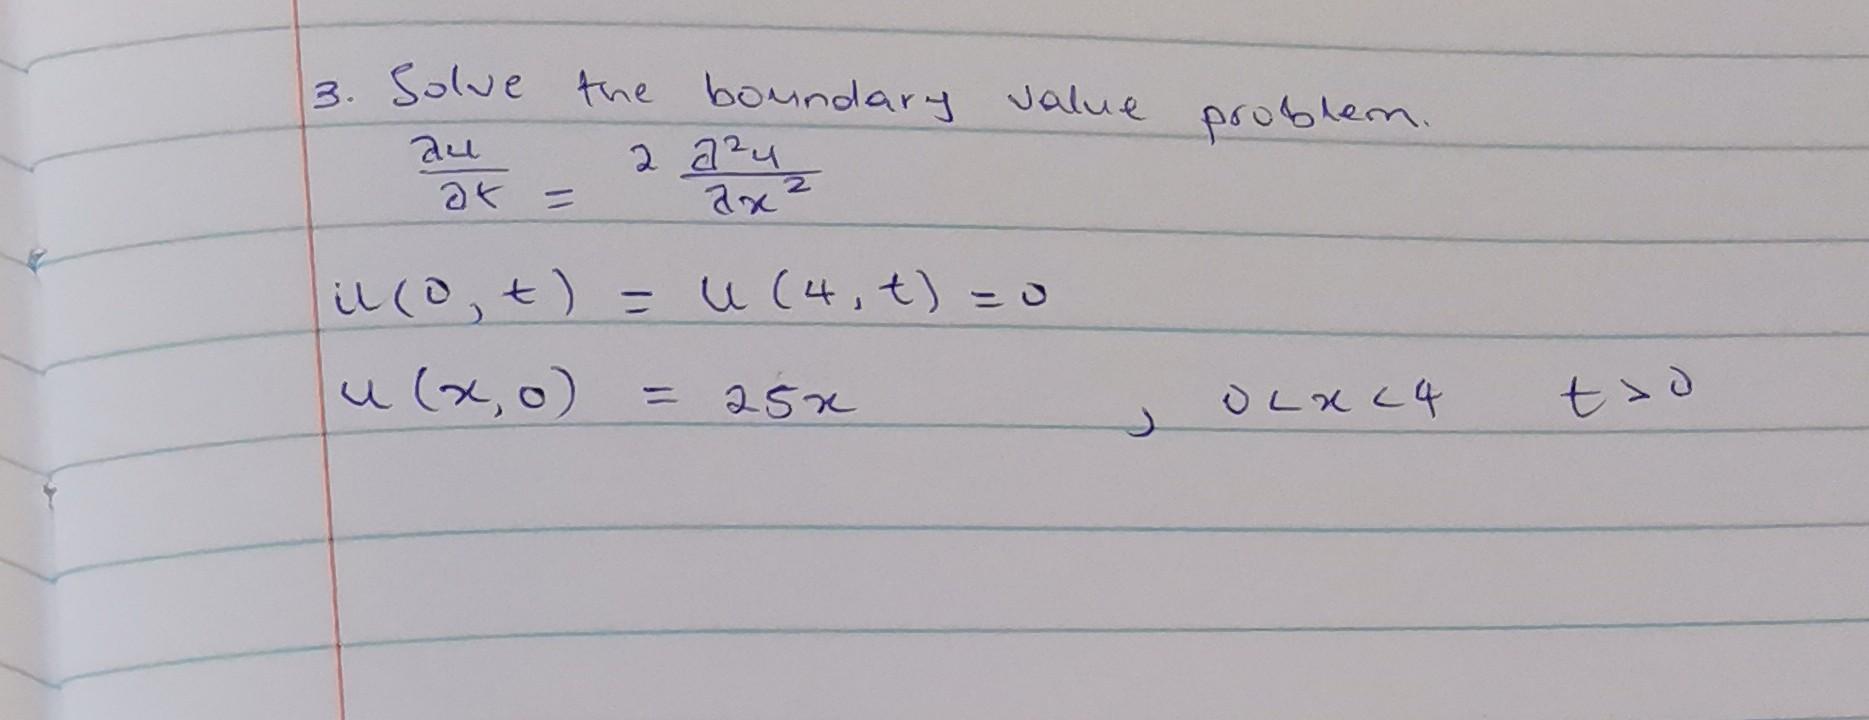 3. Solve the boundary value problem.
∂u/∂t = 2 ∂²u/∂x²
u(0, t) = u(4, t) = 0
u(x, 0) = 25x , 0 < x < 4 t > 0